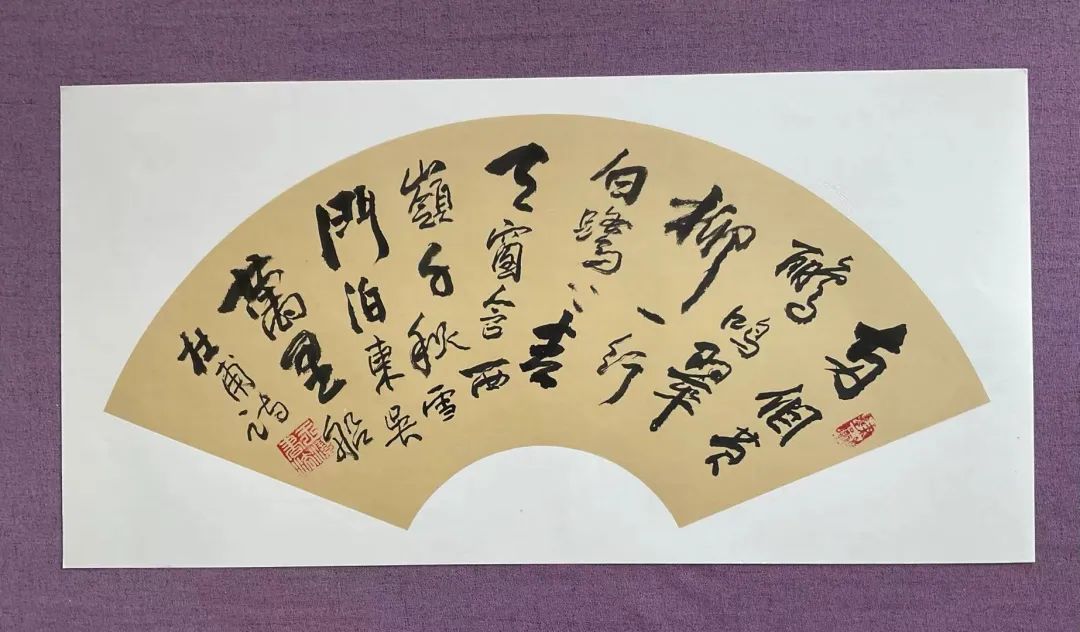 两個黄
鸝鳴翠
柳一行
白鷺上青
天窗含西
嶺千秋雪
門泊東吳
萬里船
杜甫詩